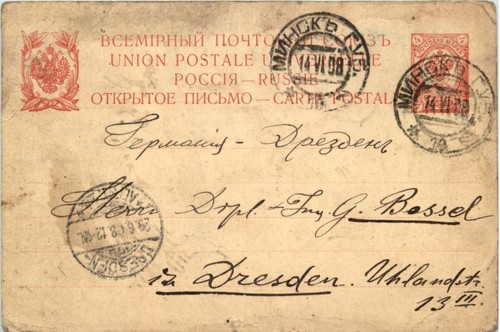 ВСЕМІРНЫЙ ПОЧТОВЫЙ СОЮЗЪ
UNION POSTALE UNIVERSELLE
РОССІЯ — RUSSIE
ОТКРЫТОЕ ПИСЬМО — CARTE POSTALE
МИНСКЪ ГУБ.
14 VI 08
МИНСКЪ ГУБ.
14 VI 08
Германия - Дрезденъ
Herrn Dipl.-Ing G. Bossel
in Dresden. Uhlandstr.
13 III
DRESDEN-
29.6.08. 12-1N.